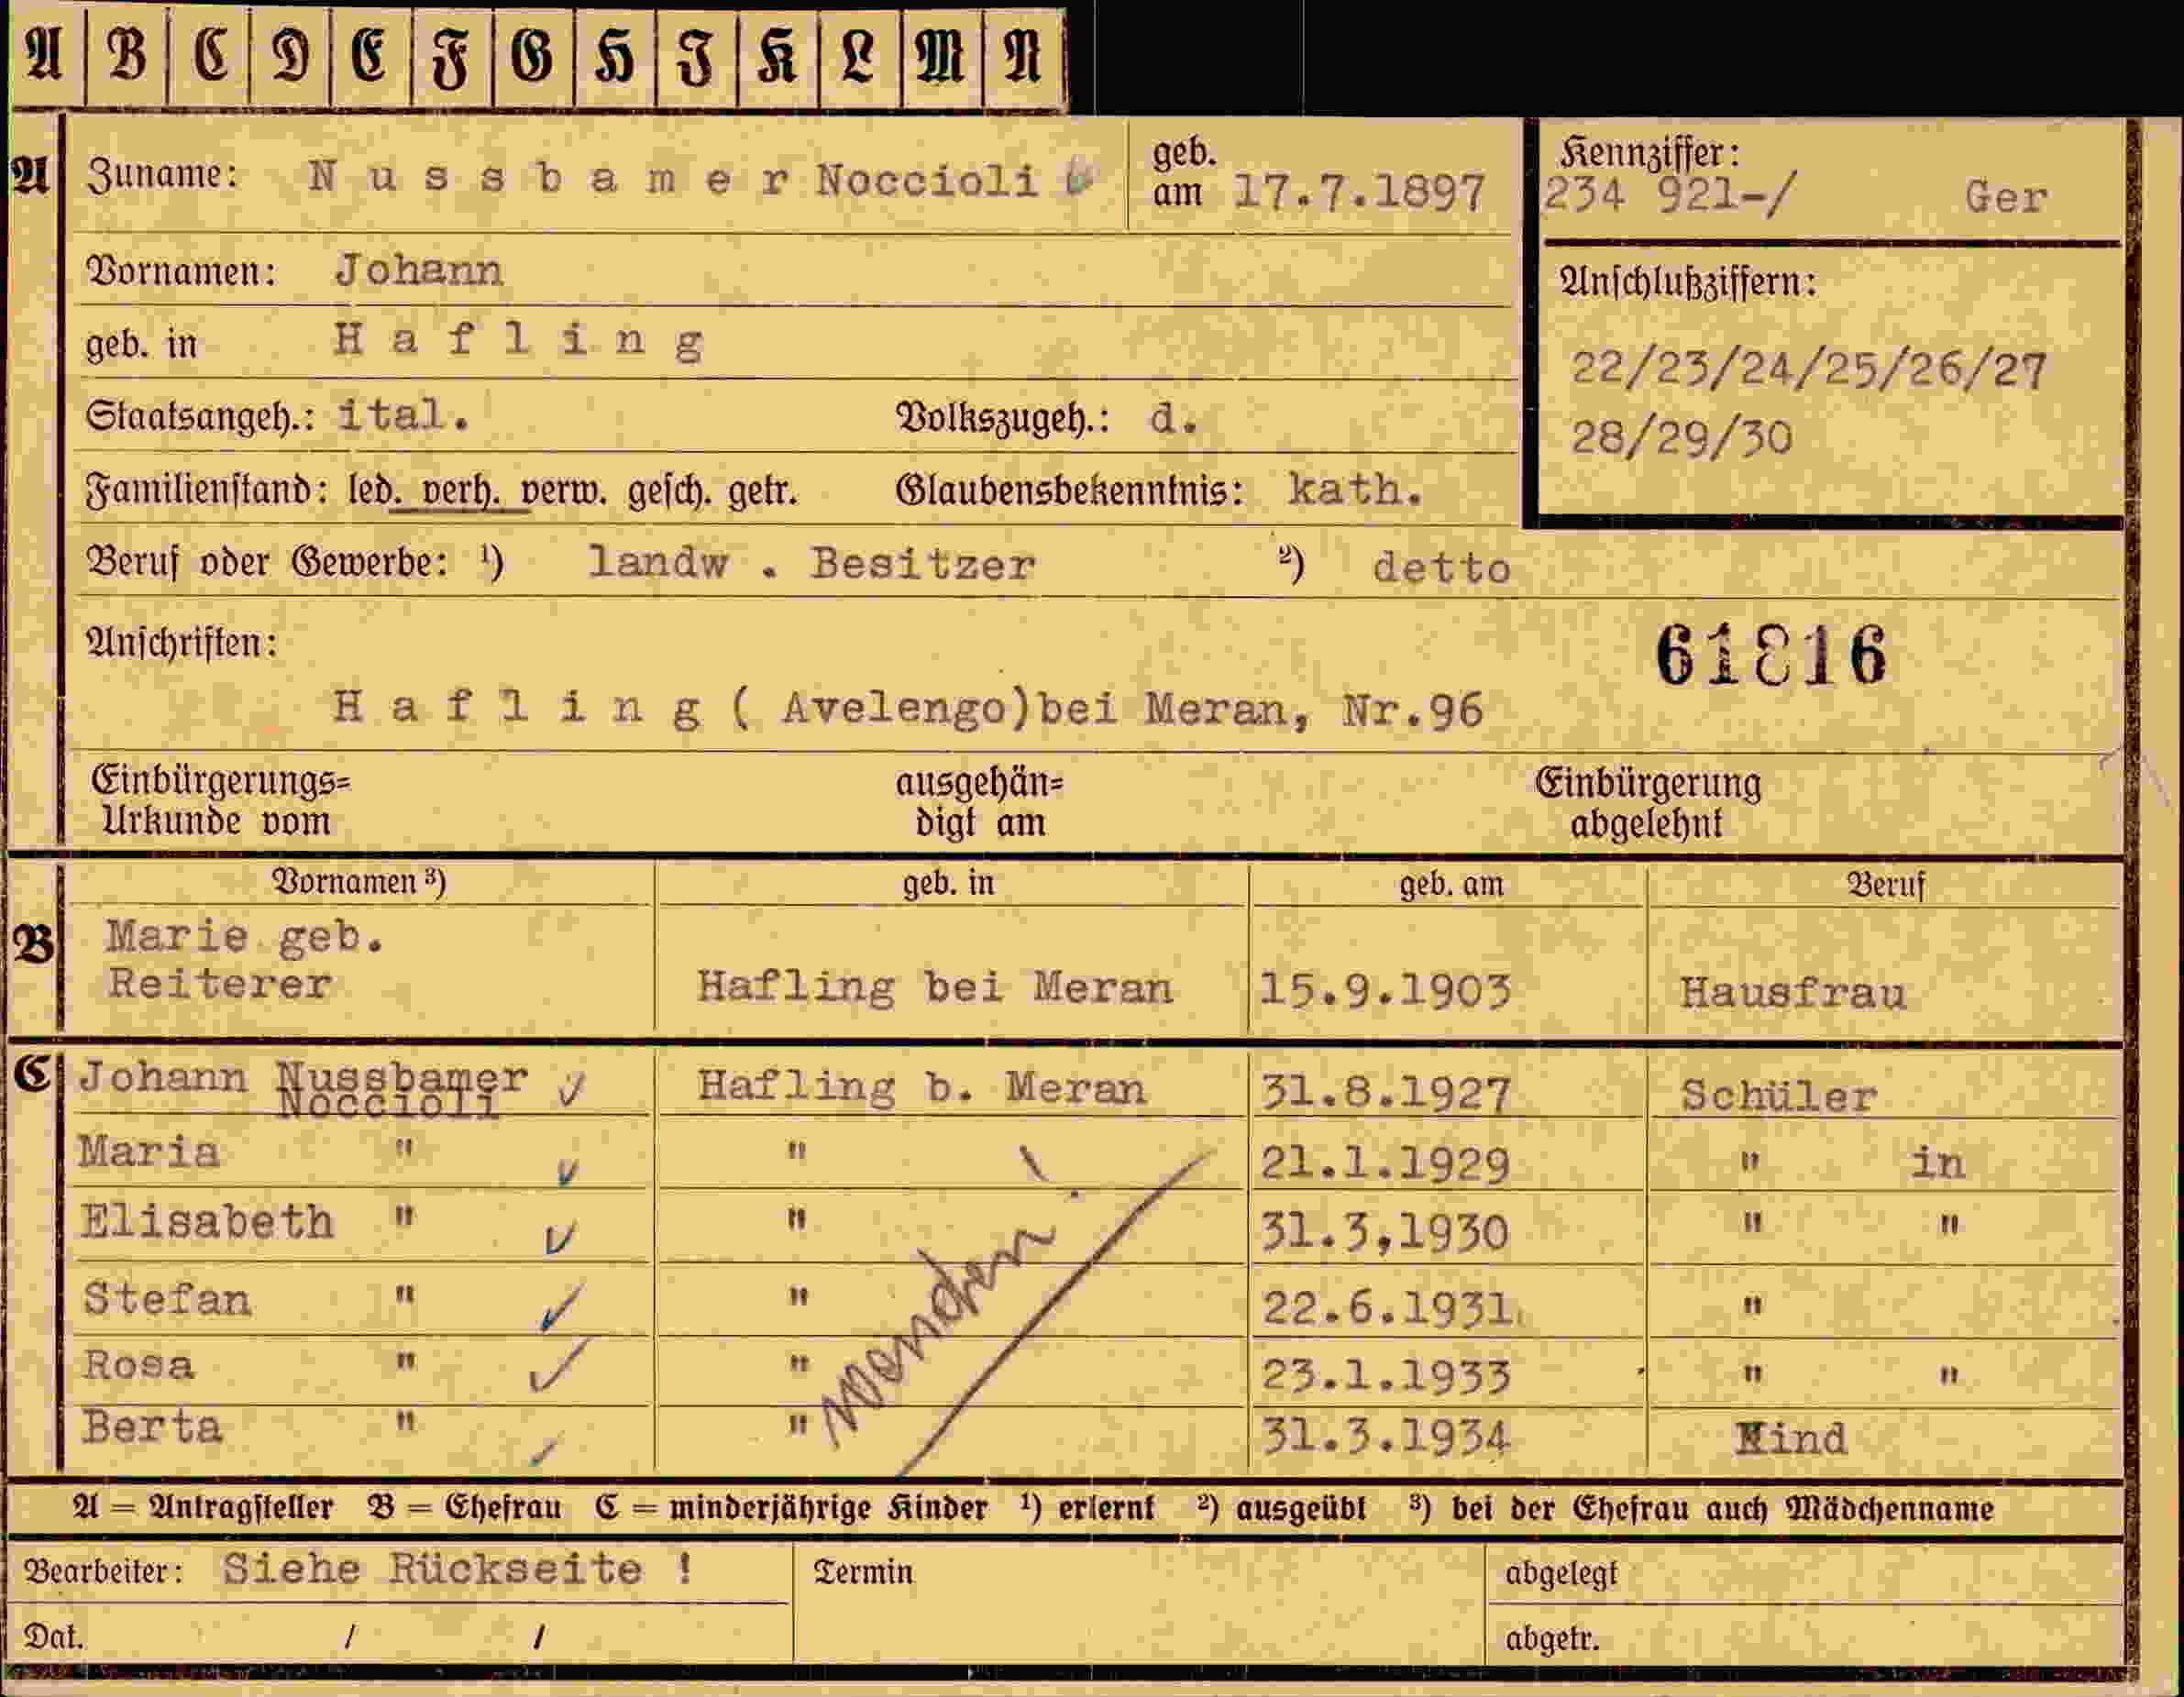 A B C D E F G H I K L M N
A Zuname: N u s s b a m e r Noccioli geb. am 17.7.1897 Kennziffer: 234 921-/ Ger
Vornamen: Johann Anschlußziffern:
geb. in H a f l i n g 22/23/24/25/26/27
Staatsangeh.: ital. Volkszugeh.: d. 28/29/30
Familienstand: led. verh. verw. gesch. getr. Glaubensbekenntnis: kath.
Beruf oder Gewerbe: ¹) landw . Besitzer ²) detto
Anschriften: 61816
H a f l i n g ( Avelengo)bei Meran, Nr.96
Einbürgerungs= ausgehän= Einbürgerung
Urkunde vom digt am abgelehnt
Vornamen ³) geb. in geb. am Beruf
B Marie geb.
Reiterer Hafling bei Meran 15.9.1903 Hausfrau
C Johann Nussbamer Hafling b. Meran 31.8.1927 Schüler
Noccioli
Maria " " 21.1.1929 " in
Elisabeth " " 31.3,1930 " "
Stefan " " 22.6.1931 "
Rosa " " 23.1.1933 " "
Berta " " 31.3.1934 Kind
A = Antragsteller B = Ehefrau C = minderjährige Kinder ¹) erlernt ²) ausgeübt ³) bei der Ehefrau auch Mädchenname
Bearbeiter: Siehe Rückseite ! Termin abgelegt
Dat. / / abgetr.